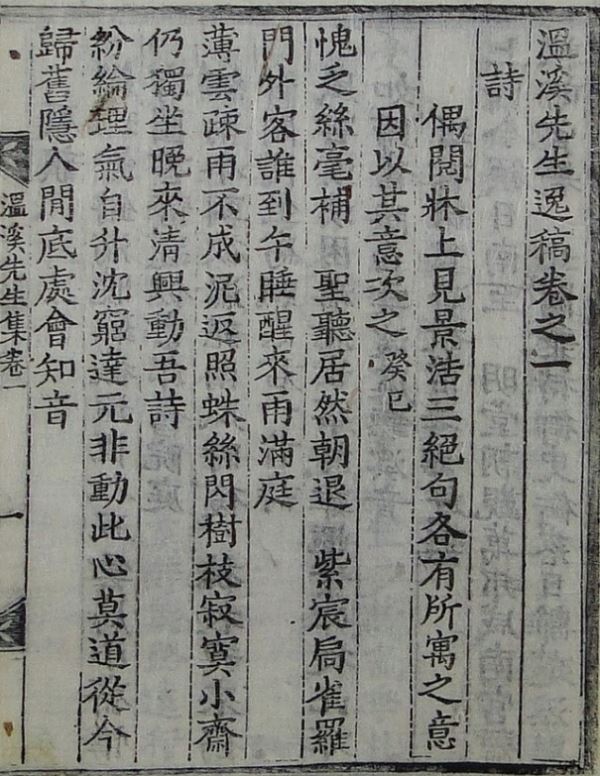 溫溪先生逸稿卷之一
詩
偶閱牀上見景浩三絕句各有所寓之意
因以其意次之 癸巳
愧乏絲毫補 聖聽居然朝退 紫宸扃雀羅
門外客誰到午睡醒來雨滿庭
薄雲疎雨不成泥返照蛛絲閃樹枝寂寞小齋
仍獨坐晚來清興動吾詩
紛綸理氣自升沈窮達元非動此心莫道從今
歸舊隱人間底處會知音
溫溪先生集卷一
一